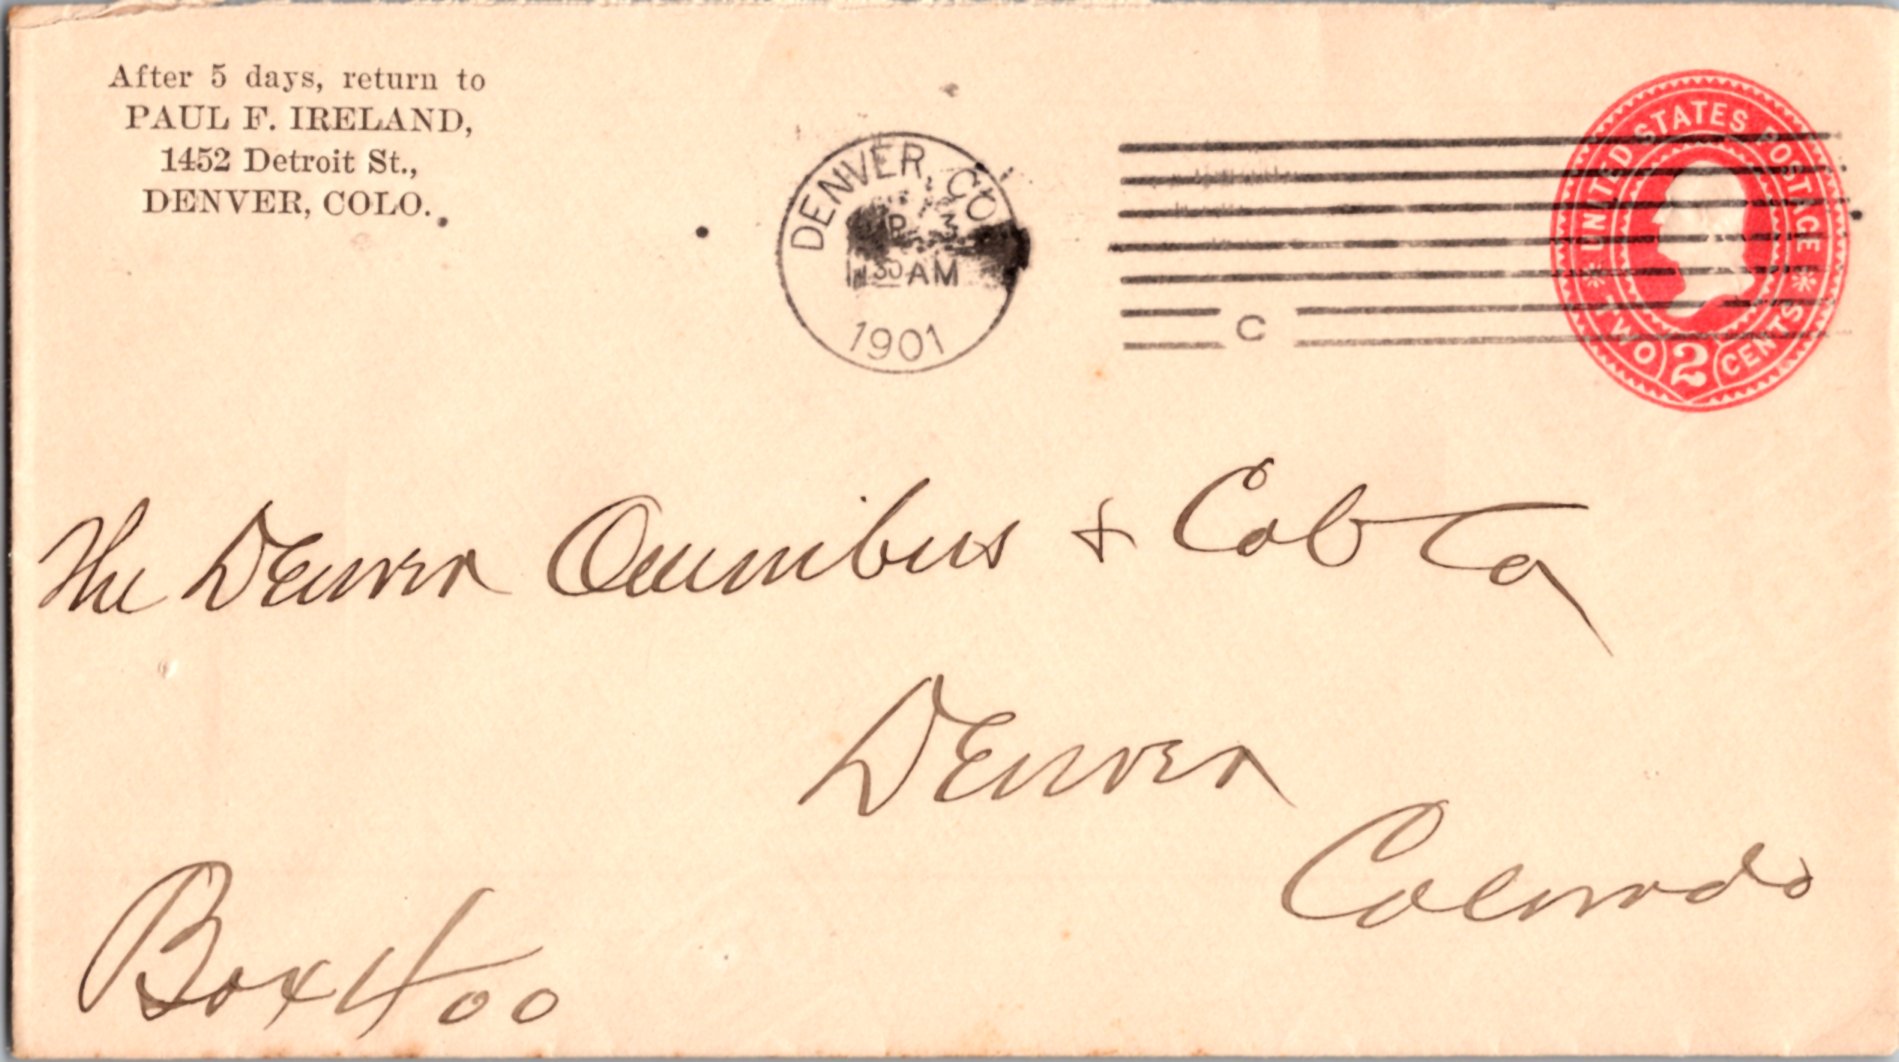 After 5 days, return to
PAUL F. IRELAND,
1452 Detroit St.,
DENVER, COLO.
DENVER, COLO
3
30 AM
1901
C
UNITED STATES POSTAGE
TWO 2 CENTS
The Denver Omnibus & Cab Co
Denver
Colorado
Box 400